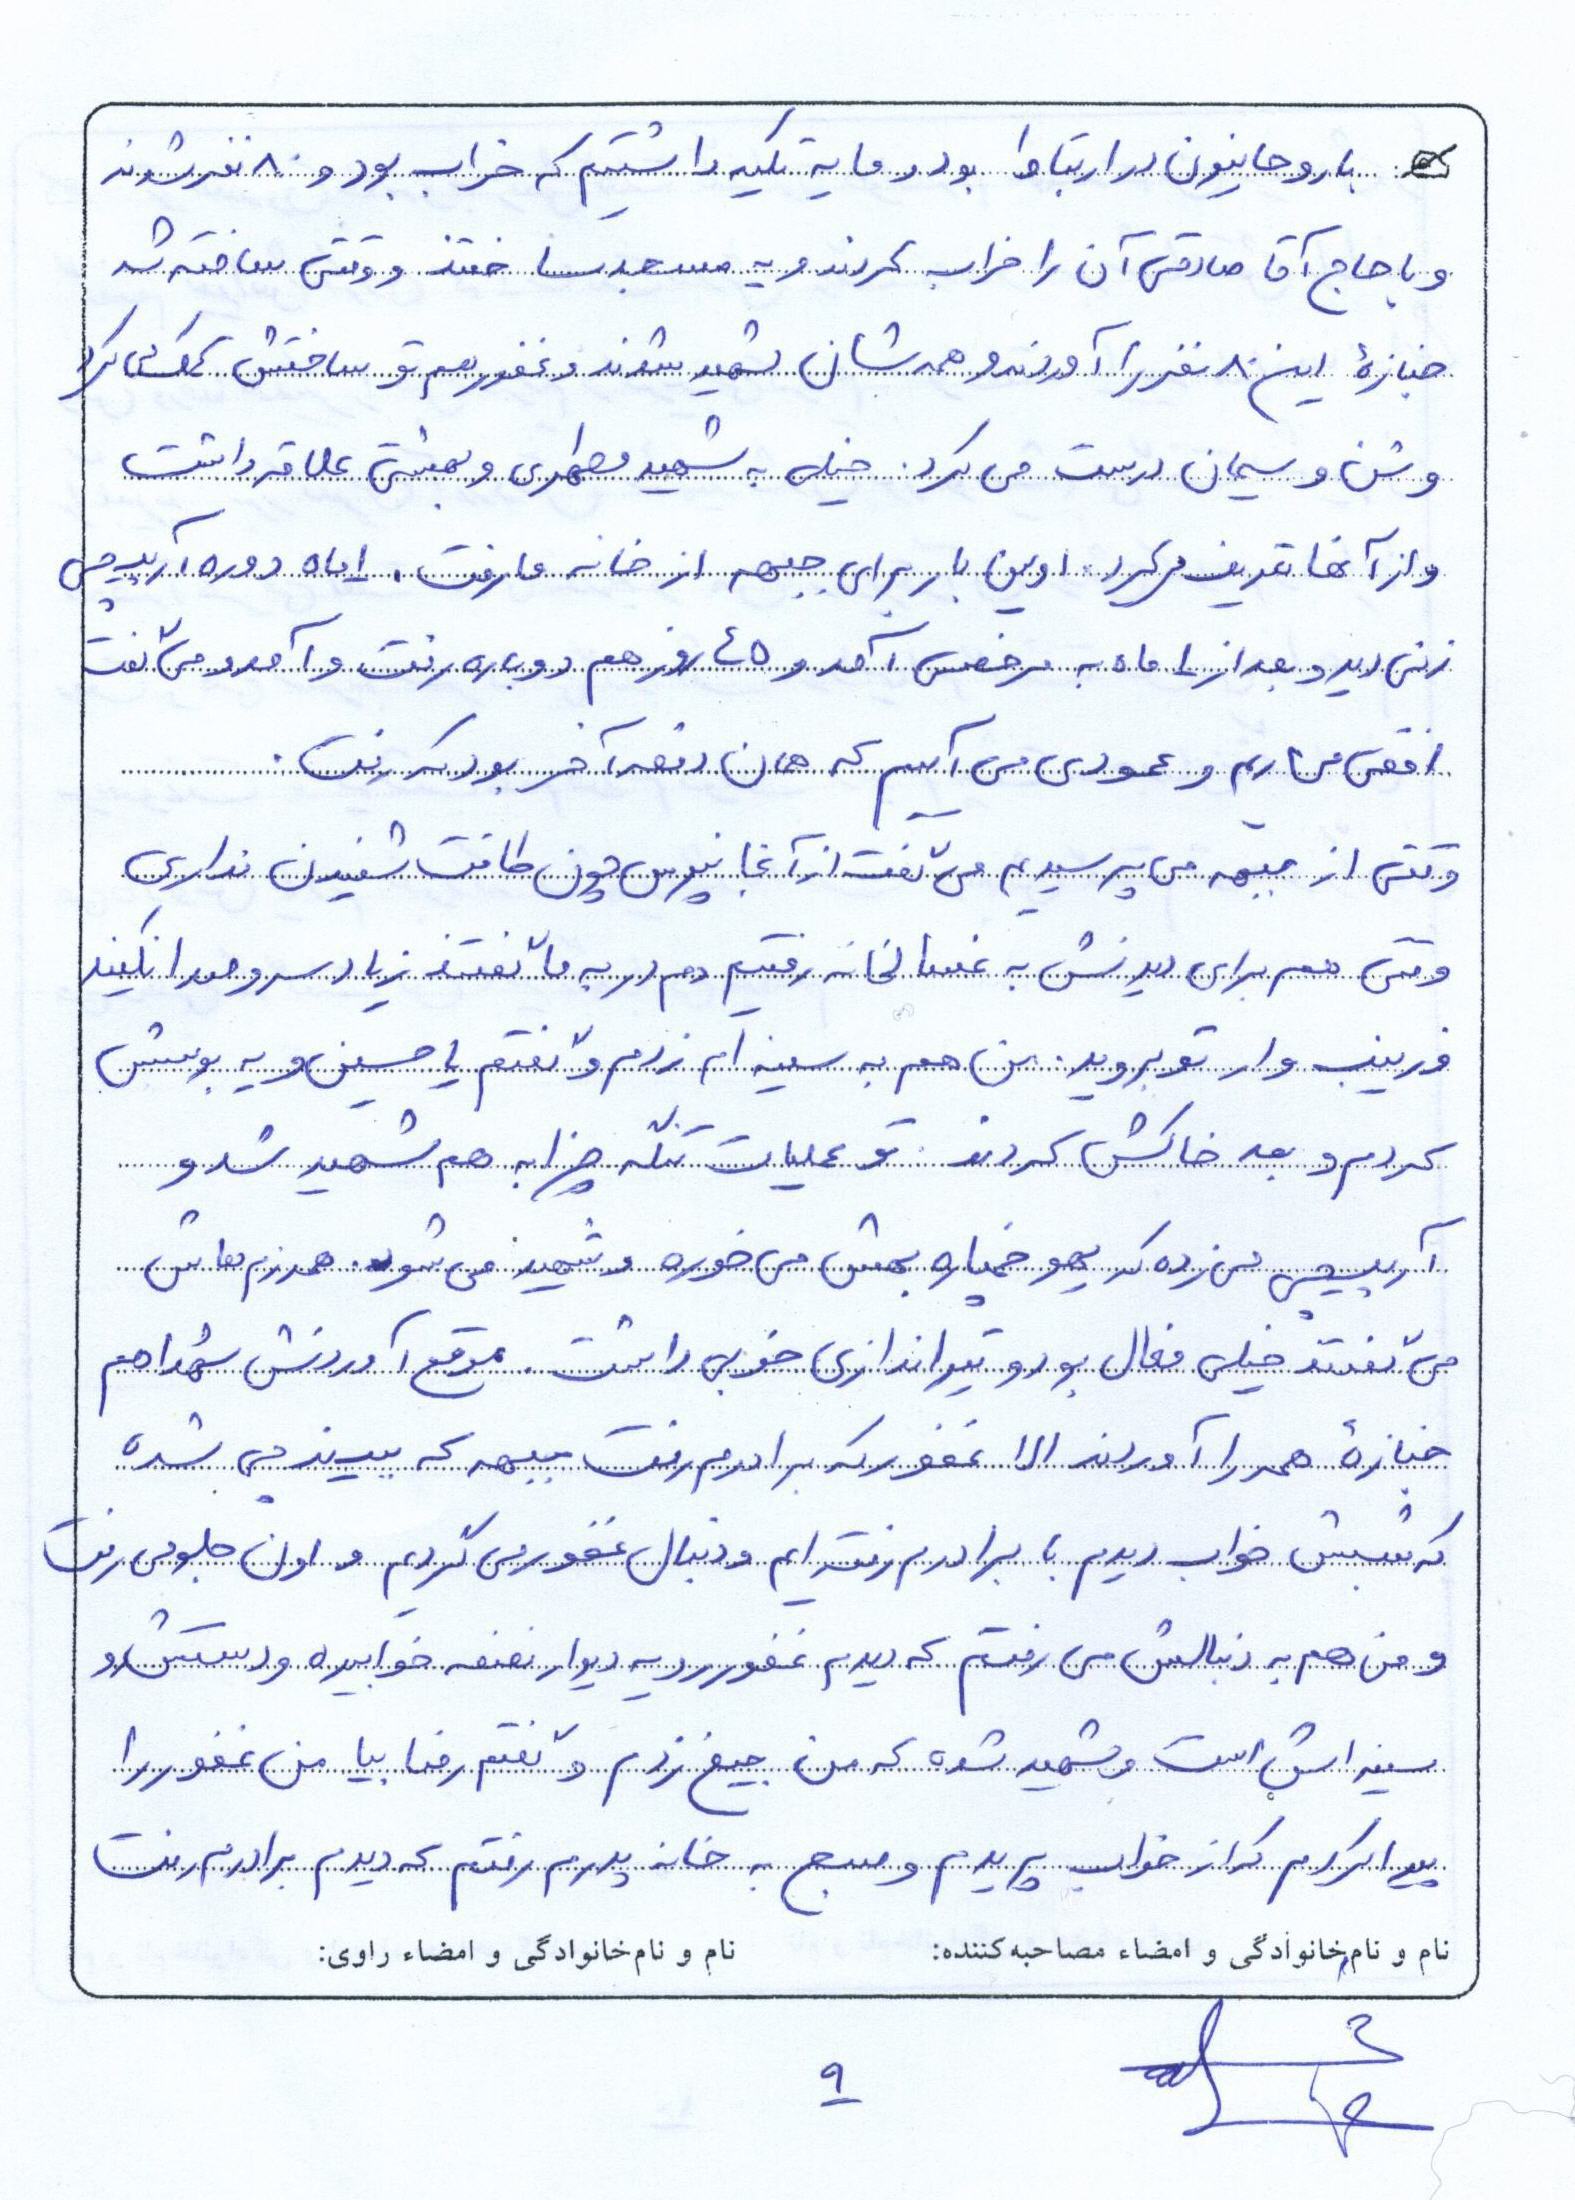 با روحانیون در ارتباط بود و ما یه تکیه داشتیم که خراب بود و ۸۰ نفر شدند
و با حاج آقا صادقی آن را خراب کردند و یه مسجد ساختند و وقتی ساخته شد
جنازهٔ این ۸۰ نفر را آوردند و همه شان شهید شدند و غفور هم تو ساختش کمک می کرد
و شن و سیمان درست می کرد. خیلی به شهید مطهری و بهشتی علاقه داشت
و از آنها تعریف می کرد. اولین بار برای جبهه از خانه ما رفت. ۱ماه دوره آرپیجی
زنی دید و بعد از ۱ ماه به مرخصی آمد و ۴۵ روز هم دوباره رفت و آمد و می گفت
افقی می ریم و عمودی می آییم که همان دفعه آخر بود که رفت.
وقتی از جبهه می پرسیدیم می گفت از آنجا نپرس چون طاقت شنیدن نداری
وقتی هم برای دیدنش به غسالخانه رفتیم دم در به ما گفتند زیاد سر و صدا نکنید
و زینب وار تو بروید. من هم به سینه ام زدم و گفتم یا حسین و یه بوسش
کردم و بعد خاکش کردند. تو عملیات تنگه چزابه هم شهید شد و
آرپیجی می زده که یهو خمپاره بهش می خوره و شهید می شود. همرزم هاش
می گفتند خیلی فعال بود و تیراندازی خوبی داشت. موقع آوردنش شهدا هم
جنازهٔ همه را آوردند الا غفور که برادرم رفت جبهه که ببیند چی شده
که شبش خواب دیدم با برادرم رفته ایم و دنبال غفور می گردیم و اون جلو می رفت
و من هم به دنبالش می رفتم که دیدم غفور رد یه دیوار نصفه خوابیده و دستش رو
سینه اش است و شهید شده که من جیغ زدم و گفتم رضا بیا من غفور را
پیدا کردم که از خواب پریدم و صبح به خانه پدرم رفتم که دیدم برادرم رفت
نام و نام‌خانوادگی و امضاء مصاحبه‌کننده: نام و نام‌خانوادگی و امضاء راوی:
۹